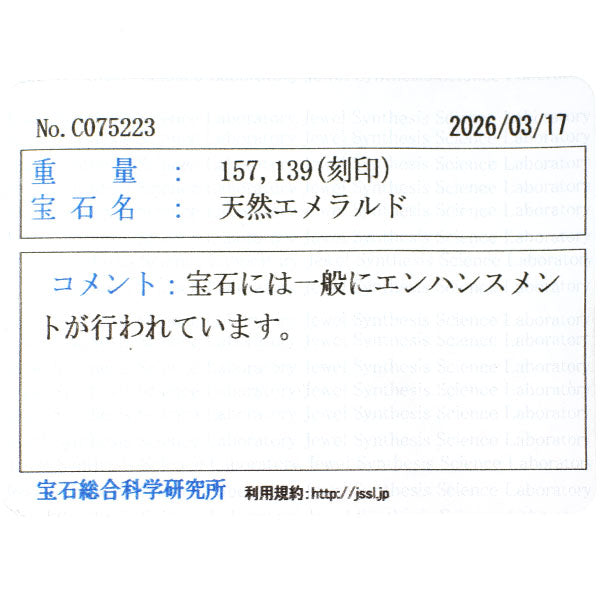 No.C075223 2026/03/17
重量: 157,139(刻印)
宝石名: 天然エメラルド
コメント:宝石には一般にエンハンスメン
トが行われています。
宝石総合科学研究所 利用規約:http://jssl.jp
Jewel Synthesis Science Laboratory